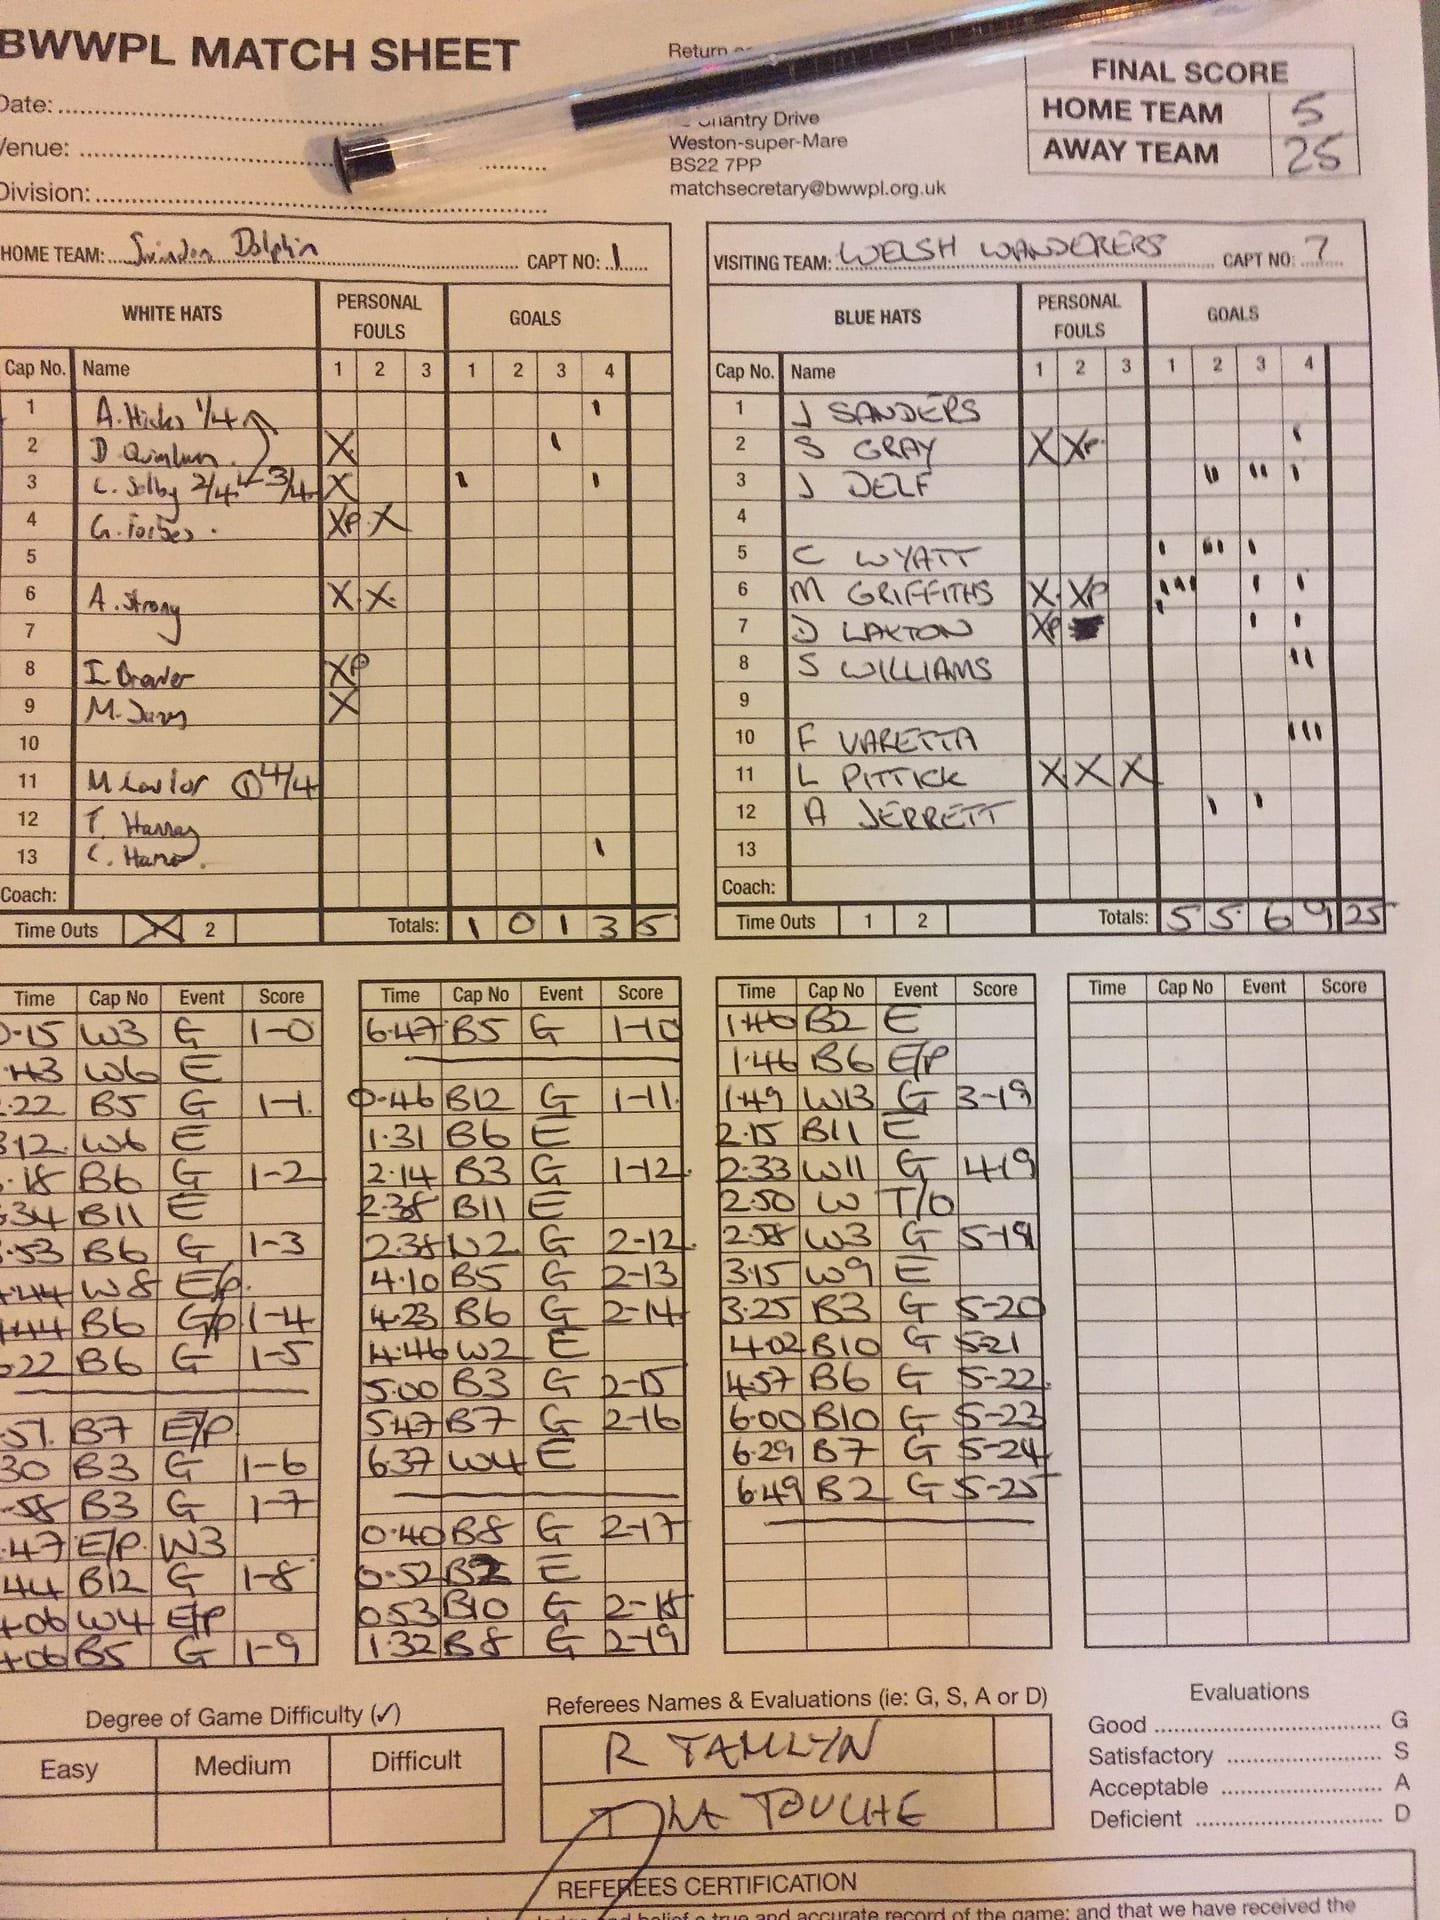 BWWPL MATCH SHEET
Date:
Venue:
Division:
Return
Chantry Drive
Weston-super-Mare
BS22 7PP
matchsecretary@bwwpl.org.uk
FINAL SCORE
HOME TEAM 5
AWAY TEAM 25
HOME TEAM: Swindon Dolphin CAPT NO: 1
WHITE HATS PERSONAL FOULS GOALS
Cap No. Name 1 2 3 1 2 3 4
1 A. Hicks 1/4 I
2 D. X I
3 C. Selby 2/4 3/4 X I I
4 G. Forbes. XP X
5
6 A. Strong X X
7
8 I. XP
9 M. X
10
11 M 1 4/4
12 T.
13 C. I
Coach:
Time Outs X 2 Totals: 1 0 1 3 5
VISITING TEAM: WELSH WANDERERS CAPT NO: 7
BLUE HATS PERSONAL FOULS GOALS
Cap No. Name 1 2 3 1 2 3 4
1 J SANDERS
2 S GRAY X XP I
3 J DELF II II I
4
5 C WYATT I III I
6 M GRIFFITHS X XP IIII I I
7 D LAXTON XP I I
8 S WILLIAMS II
9
10 F VARETTA III
11 L PITTICK X X X
12 A JERRETT I I
13
Coach:
Time Outs 1 2 Totals: 5 5 6 9 25
Time Cap No Event Score
0-15 W3 G 1-0
43 W6 E
22 B5 G 1-1
3-12 W6 E
18 B6 G 1-2
34 B11 E
53 B6 G 1-3
4-44 W8 E/P
4-44 B6 G/P 1-4
22 B6 G 1-5
51 B7 E/P
30 B3 G 1-6
58 B3 G 1-7
47 E/P W3
44 B12 G 1-8
4-06 W4 E/P
4-06 B5 G 1-9
Time Cap No Event Score
6.47 B5 G 1-10
0.46 B12 G 1-11
1.31 B6 E
2.14 B3 G 1-12
2.38 B11 E
2.38 W2 G 2-12
4.10 B5 G 2-13
4.23 B6 G 2-14
4.46 W2 E
5.00 B3 G 2-15
5.47 B7 G 2-16
6.37 W4 E
0.40 B8 G 2-17
0.52 B2 E
0.53 B10 G 2-18
1.32 B8 G 2-19
Time Cap No Event Score
1.40 B2 E
1.46 B6 E/P
1.49 W13 G 3-19
2.15 B11 E
2.33 W11 G 4-19
2.50 W T/O
2.58 W3 G 5-19
3.15 W9 E
3.25 B3 G 5-20
4.02 B10 G 5-21
4.57 B6 G 5-22
6.00 B10 G 5-23
6.29 B7 G 5-24
6.49 B2 G 5-25
Time Cap No Event Score
Degree of Game Difficulty (✓)
Easy Medium Difficult
Referees Names & Evaluations (ie: G, S, A or D)
R TAMLYN
LA TOUCHE
Evaluations
Good G
Satisfactory S
Acceptable A
Deficient D
REFEREES CERTIFICATION
belief a true and accurate record of the game; and that we have received the